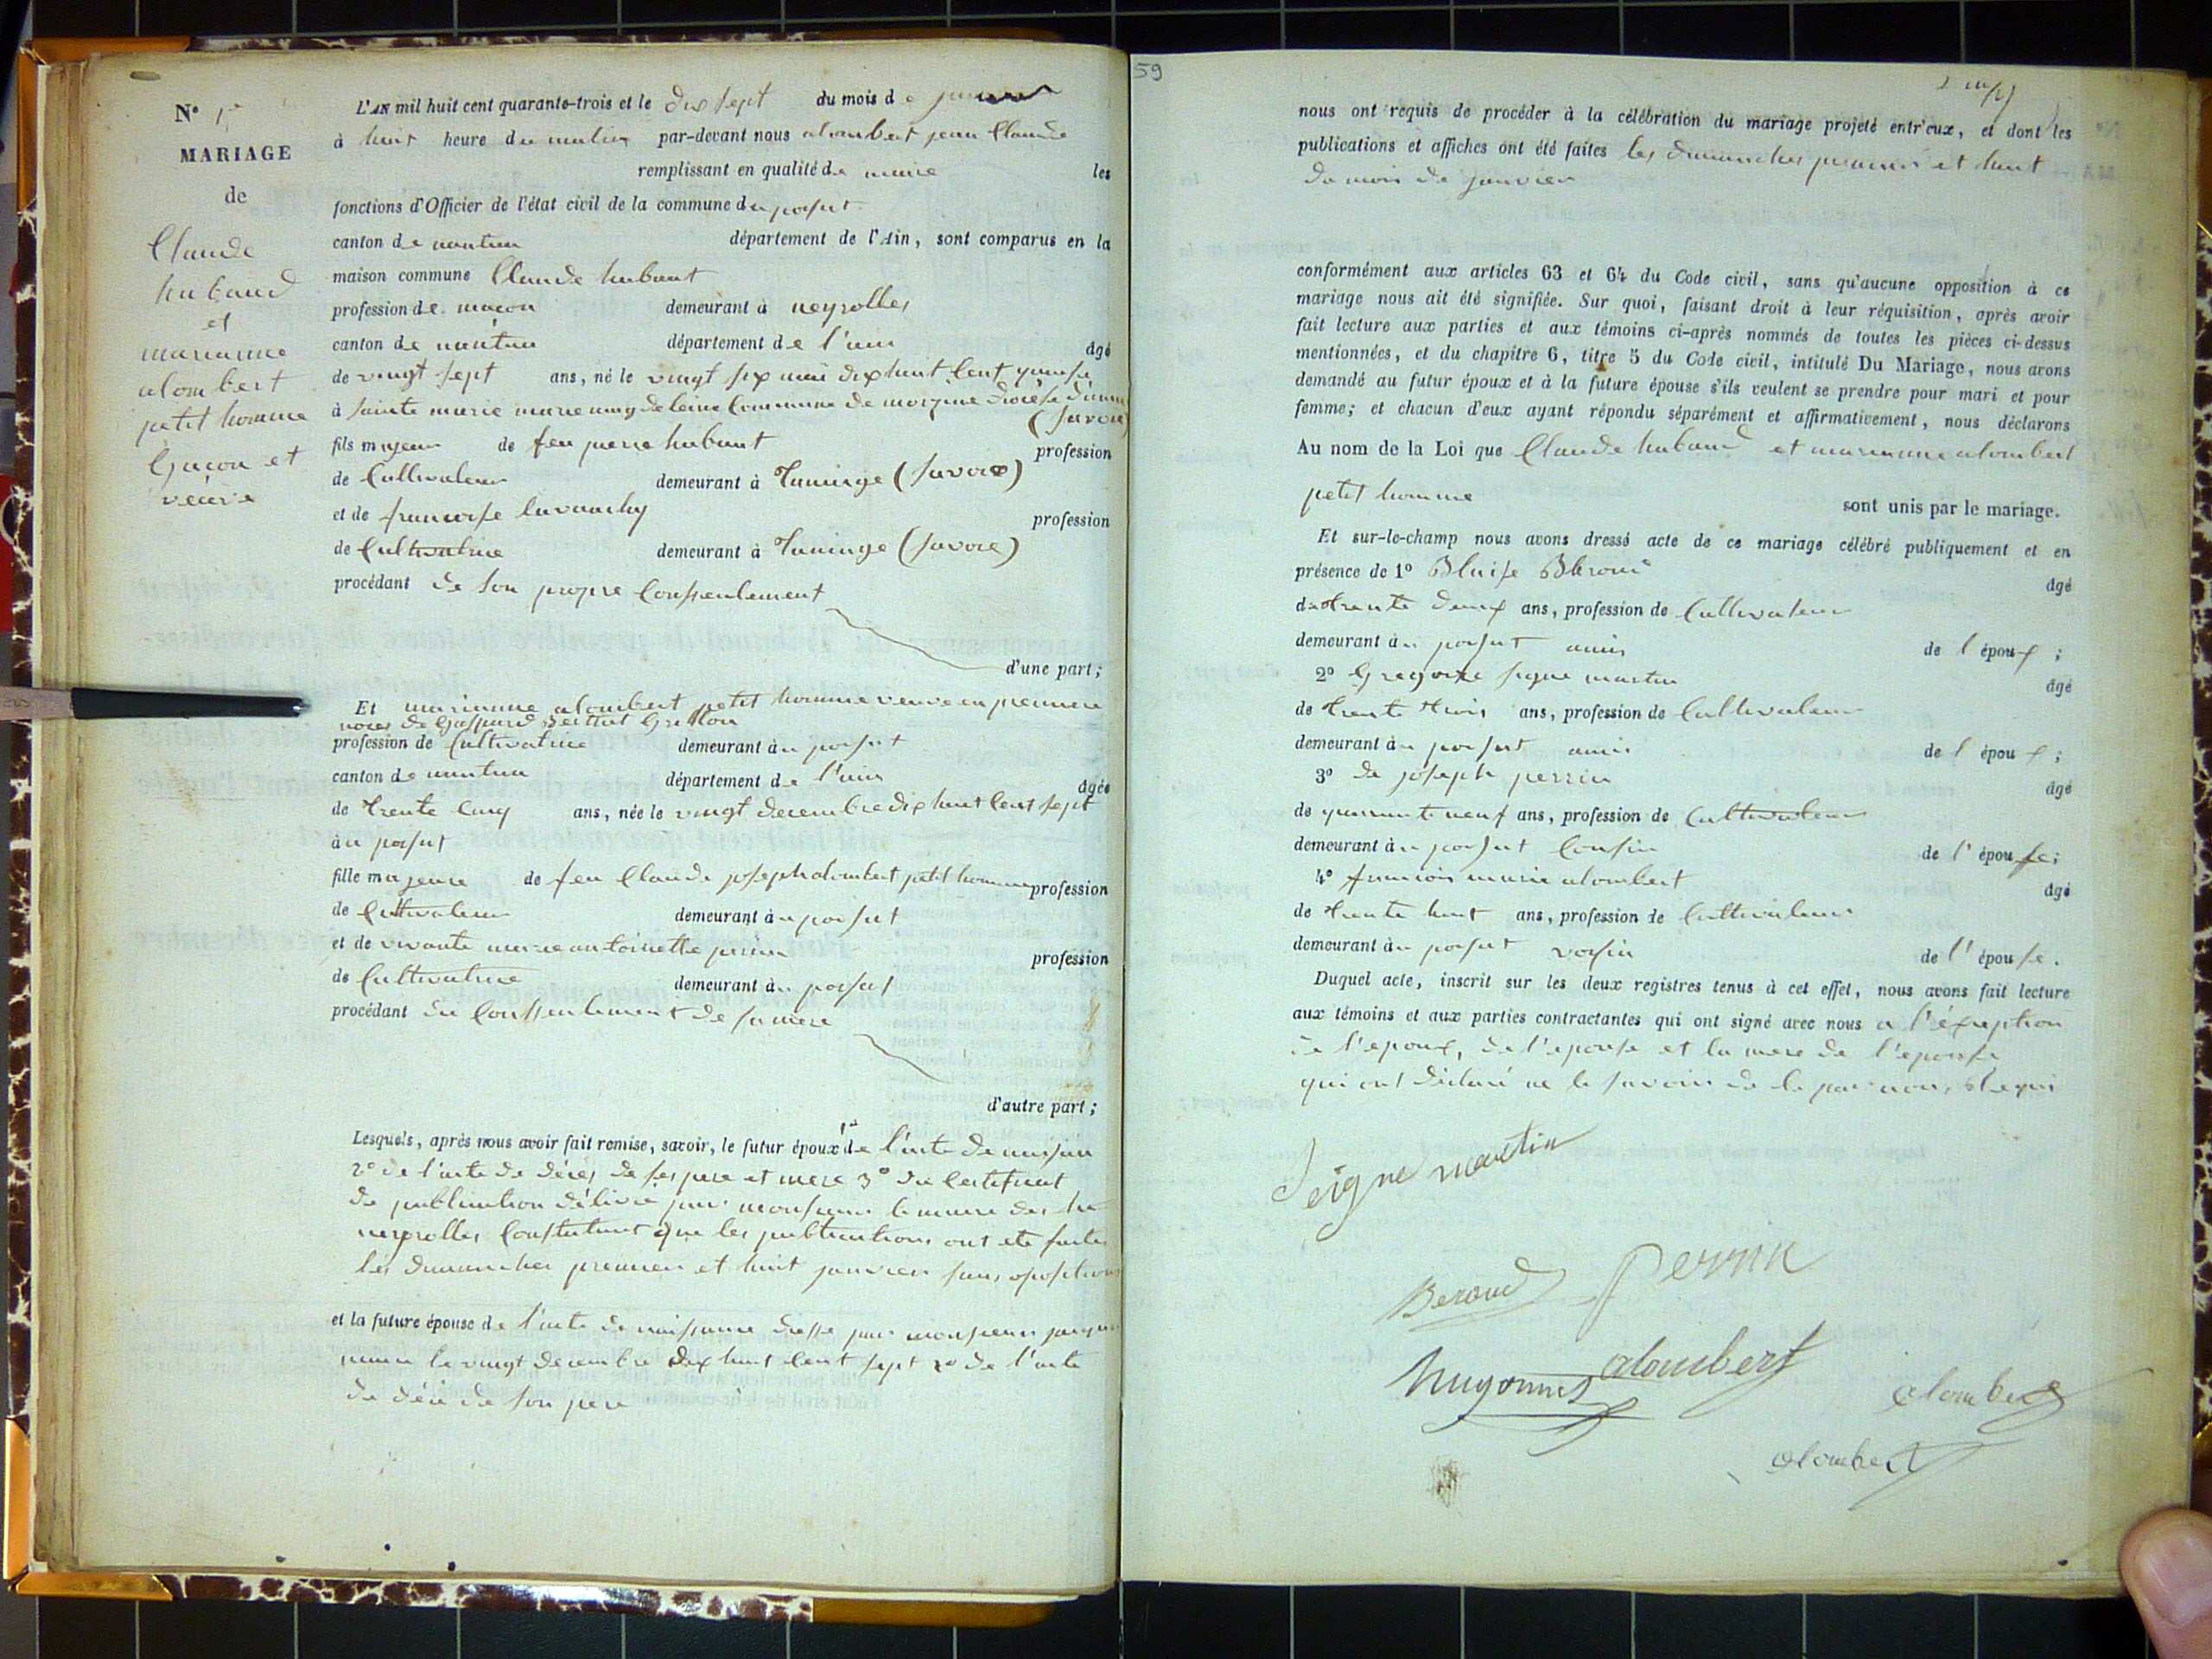 N° 1er
MARIAGE
de
Claude
hubaud
et
marianne
alombert
petit homme
Garçon et
veuve
L'AN mil huit cent quarante-trois et le dix sept du mois de janvier
à huit heure du matin par-devant nous alombert jean Claude
remplissant en qualité de maire les
fonctions d'Officier de l'état civil de la commune du poisat
canton de nantua département de l'Ain, sont comparus en la
maison commune Claude hubaut
profession de maçon demeurant à neyrolles
canton de nantua département de l'ain âgé
de vingt sept ans, né le vingt six mai dix huit cent quinse
à sainte marie Commune de morzine diocèse
(savoie)
fils majeur de feu pierre hubaut profession
de Cultivateur demeurant à taninge (savoie)
et de francoise lavanchy profession
de Cultivatrice demeurant à taninge (savoie)
procédant de son propre Consentement
d'une part;
Et marianne alombert petit homme veuve en premiere
noces de Gaspard berthet Grillon
profession de Cultivatrice demeurant au poisat
canton de nantua département de l'ain âgée
de trente cinq ans, née le vingt decembre dix huit cent sept
au poisat
fille majeure de feu Claude joseph alombert petit homme profession
de Cultivateur demeurant au poisat
et de vivante marie antoinette perrin profession
de Cultivatrice demeurant au poisat
procédant du Consentement de sa mere
d'autre part;
Lesquels, après nous avoir fait remise, savoir, le futur époux 1° de l'acte de naissance
2° de l'acte de décès de ses pere et mere 3° du Certificat
de publication délivré par monsieur le maire des
neyrolles Constatant que les publications ont eté faites
les dimanches premier et huit janvier sans oposition
et la future épouse de l'acte de naissance dressé par monsieur
maire le vingt decembre dix huit cent sept 2° de l'acte
de décè de son pere
59
nous ont requis de procéder à la célébration du mariage projeté entr'eux, et dont les
publications et affiches ont été faites les dimanches premier et huit
du mois de janvier
conformément aux articles 63 et 64 du Code civil, sans qu'aucune opposition à ce
mariage nous ait été signifiée. Sur quoi, faisant droit à leur réquisition, après avoir
fait lecture aux parties et aux témoins ci-après nommés de toutes les pièces ci-dessus
mentionnées, et du chapitre 6, titre 5 du Code civil, intitulé Du Mariage, nous avons
demandé au futur époux et à la future épouse s'ils veulent se prendre pour mari et pour
femme; et chacun d'eux ayant répondu séparément et affirmativement, nous déclarons
Au nom de la Loi que Claude hubaud et marianne alombert
petit homme sont unis par le mariage.
Et sur-le-champ nous avons dressé acte de ce mariage célébré publiquement et en
présence de 1° Blaise Béroud âgé
de trente deux ans, profession de Cultivateur
demeurant au poisat amis de l'époux;
2° Gregoire segne martin âgé
de trente trois ans, profession de Cultivateur
demeurant au poisat amis de l'époux;
3° de joseph perrin âgé
de quarante neuf ans, profession de Cultivateur
demeurant au poisat Cousin de l'épouse;
4° francois marie alombert âgé
de trente huit ans, profession de Cultivateur
demeurant au poisat voisin de l'épouse.
Duquel acte, inscrit sur les deux registres tenus à cet effet, nous avons fait lecture
aux témoins et aux parties contractantes qui ont signé avec nous a l'exeption
de l'epoux, de l'epouse et la mere de l'epouse
qui ont déclaré ne le savoir de le par nous
Seigne martin
Beroud Perrin
hugonnet alombert
alombert
alombert